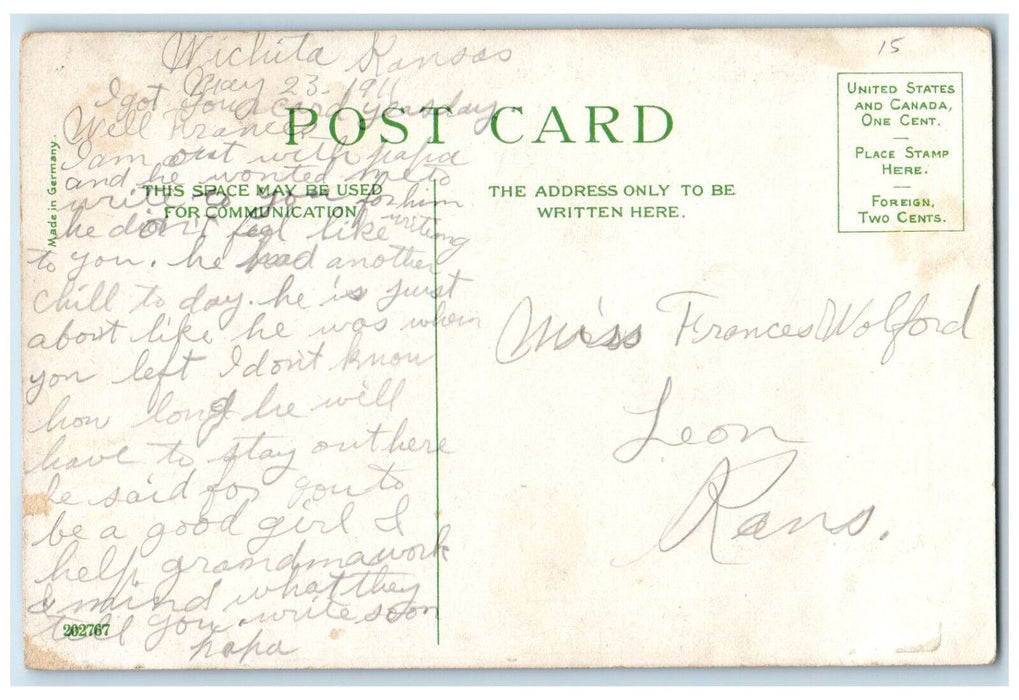 Wichita Kansas
May 23 - 1911
I got your card yesday
Well Frances
I am out with papa
and he wonted me to
write to you for him
he didn't feel like writing
to you. he had another
chill to day. he is just
about like he was when
you left I don't know
how long he will
have to stay out here
he said for you to
be a good girl &
help grandma work
& mind what they
tell you. write soon
papa
POST CARD
THIS SPACE MAY BE USED
FOR COMMUNICATION
THE ADDRESS ONLY TO BE
WRITTEN HERE.
Made in Germany.
202767
15
UNITED STATES
AND CANADA,
ONE CENT.
PLACE STAMP
HERE.
FOREIGN,
TWO CENTS.
Miss Frances Wolford
Leon
Kans.